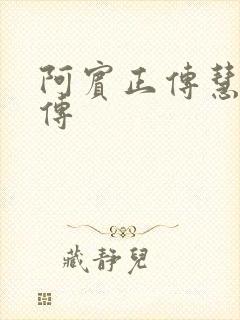 阿賓正傳慧
傳
藏靜兒